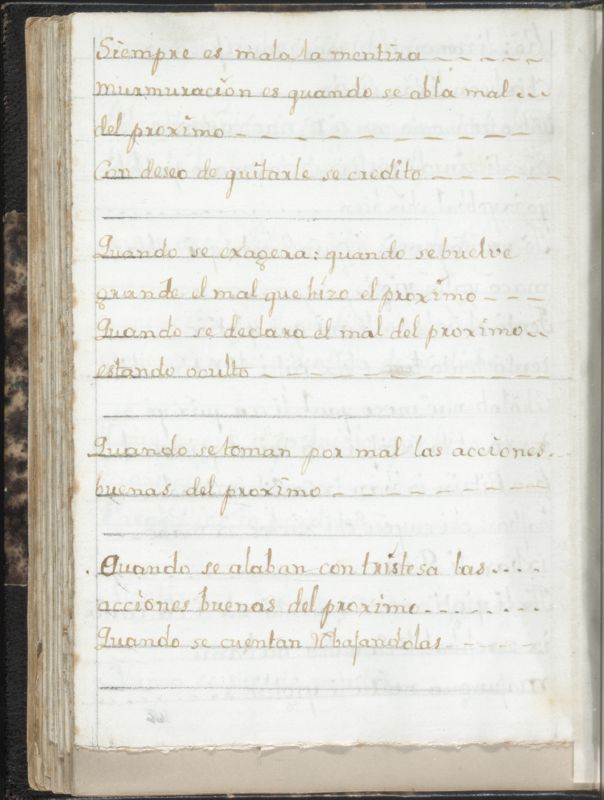 Siempre es mala la mentira
murmuración es quando se abla mal
del proximo
Con deseo de quitarle se credito
Quando se exagera: quando se buelve
grande el mal que hizo el proximo
Quando se declara el mal del proximo
estando oculto
Quando se toman por mal las acciones
buenas del proximo
Quando se alaban con tristesa las
acciones buenas del proximo
Quando se cuentan rebajandolas